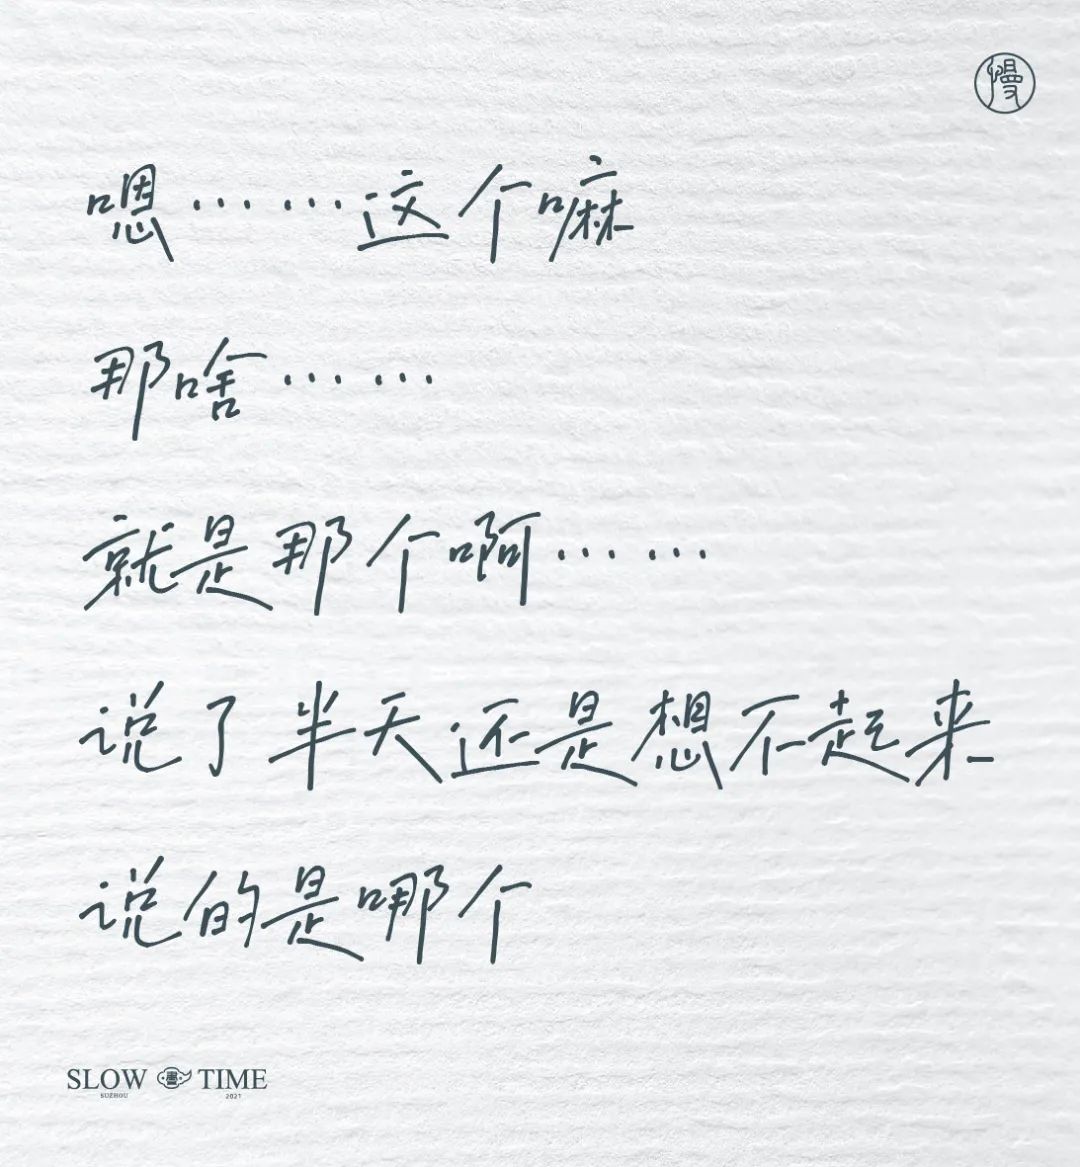 慢
嗯……这个嘛
那啥……
就是那个啊……
说了半天还是想不起来
说的是哪个
SLOW 書 TIME
SUZHOU 2021